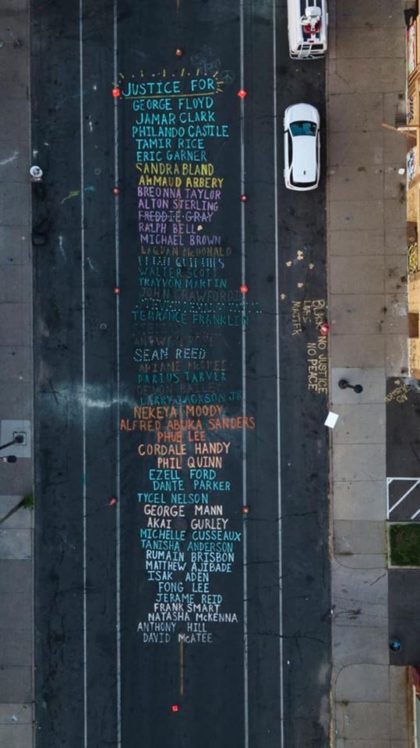 JUSTICE FOR
GEORGE FLOYD
JAMAR CLARK
PHILANDO CASTILE
TAMIR RICE
ERIC GARNER
SANDRA BLAND
AHMAUD ARBERY
BREONNA TAYLOR
ALTON STERLING
FREDDIE GRAY
RALPH BELL
MICHAEL BROWN
LAQUAN MCDONALD
WALTER SCOTT
TRAYVON MARTIN
JOHN CRAWFORD
TERRANCE FRANKLIN
SEAN REED
DARIUS TARVER
LARRY JACKSON JR
NEKEYA MOODY
ALFRED ABUKA SANDERS
PHUE LEE
CORDALE HANDY
PHIL QUINN
EZELL FORD
DANTE PARKER
TYCEL NELSON
GEORGE MANN
AKAI GURLEY
MICHELLE CUSSEAUX
TANISHA ANDERSON
RUMAIN BRISBON
MATTHEW AJIBADE
ISAK ADEN
FONG LEE
JERAME REID
FRANK SMART
NATASHA MCKENNA
ANTHONY HILL
DAVID MCATEE
NO JUSTICE
NO PEACE
BLACK
LIVES
MATTER